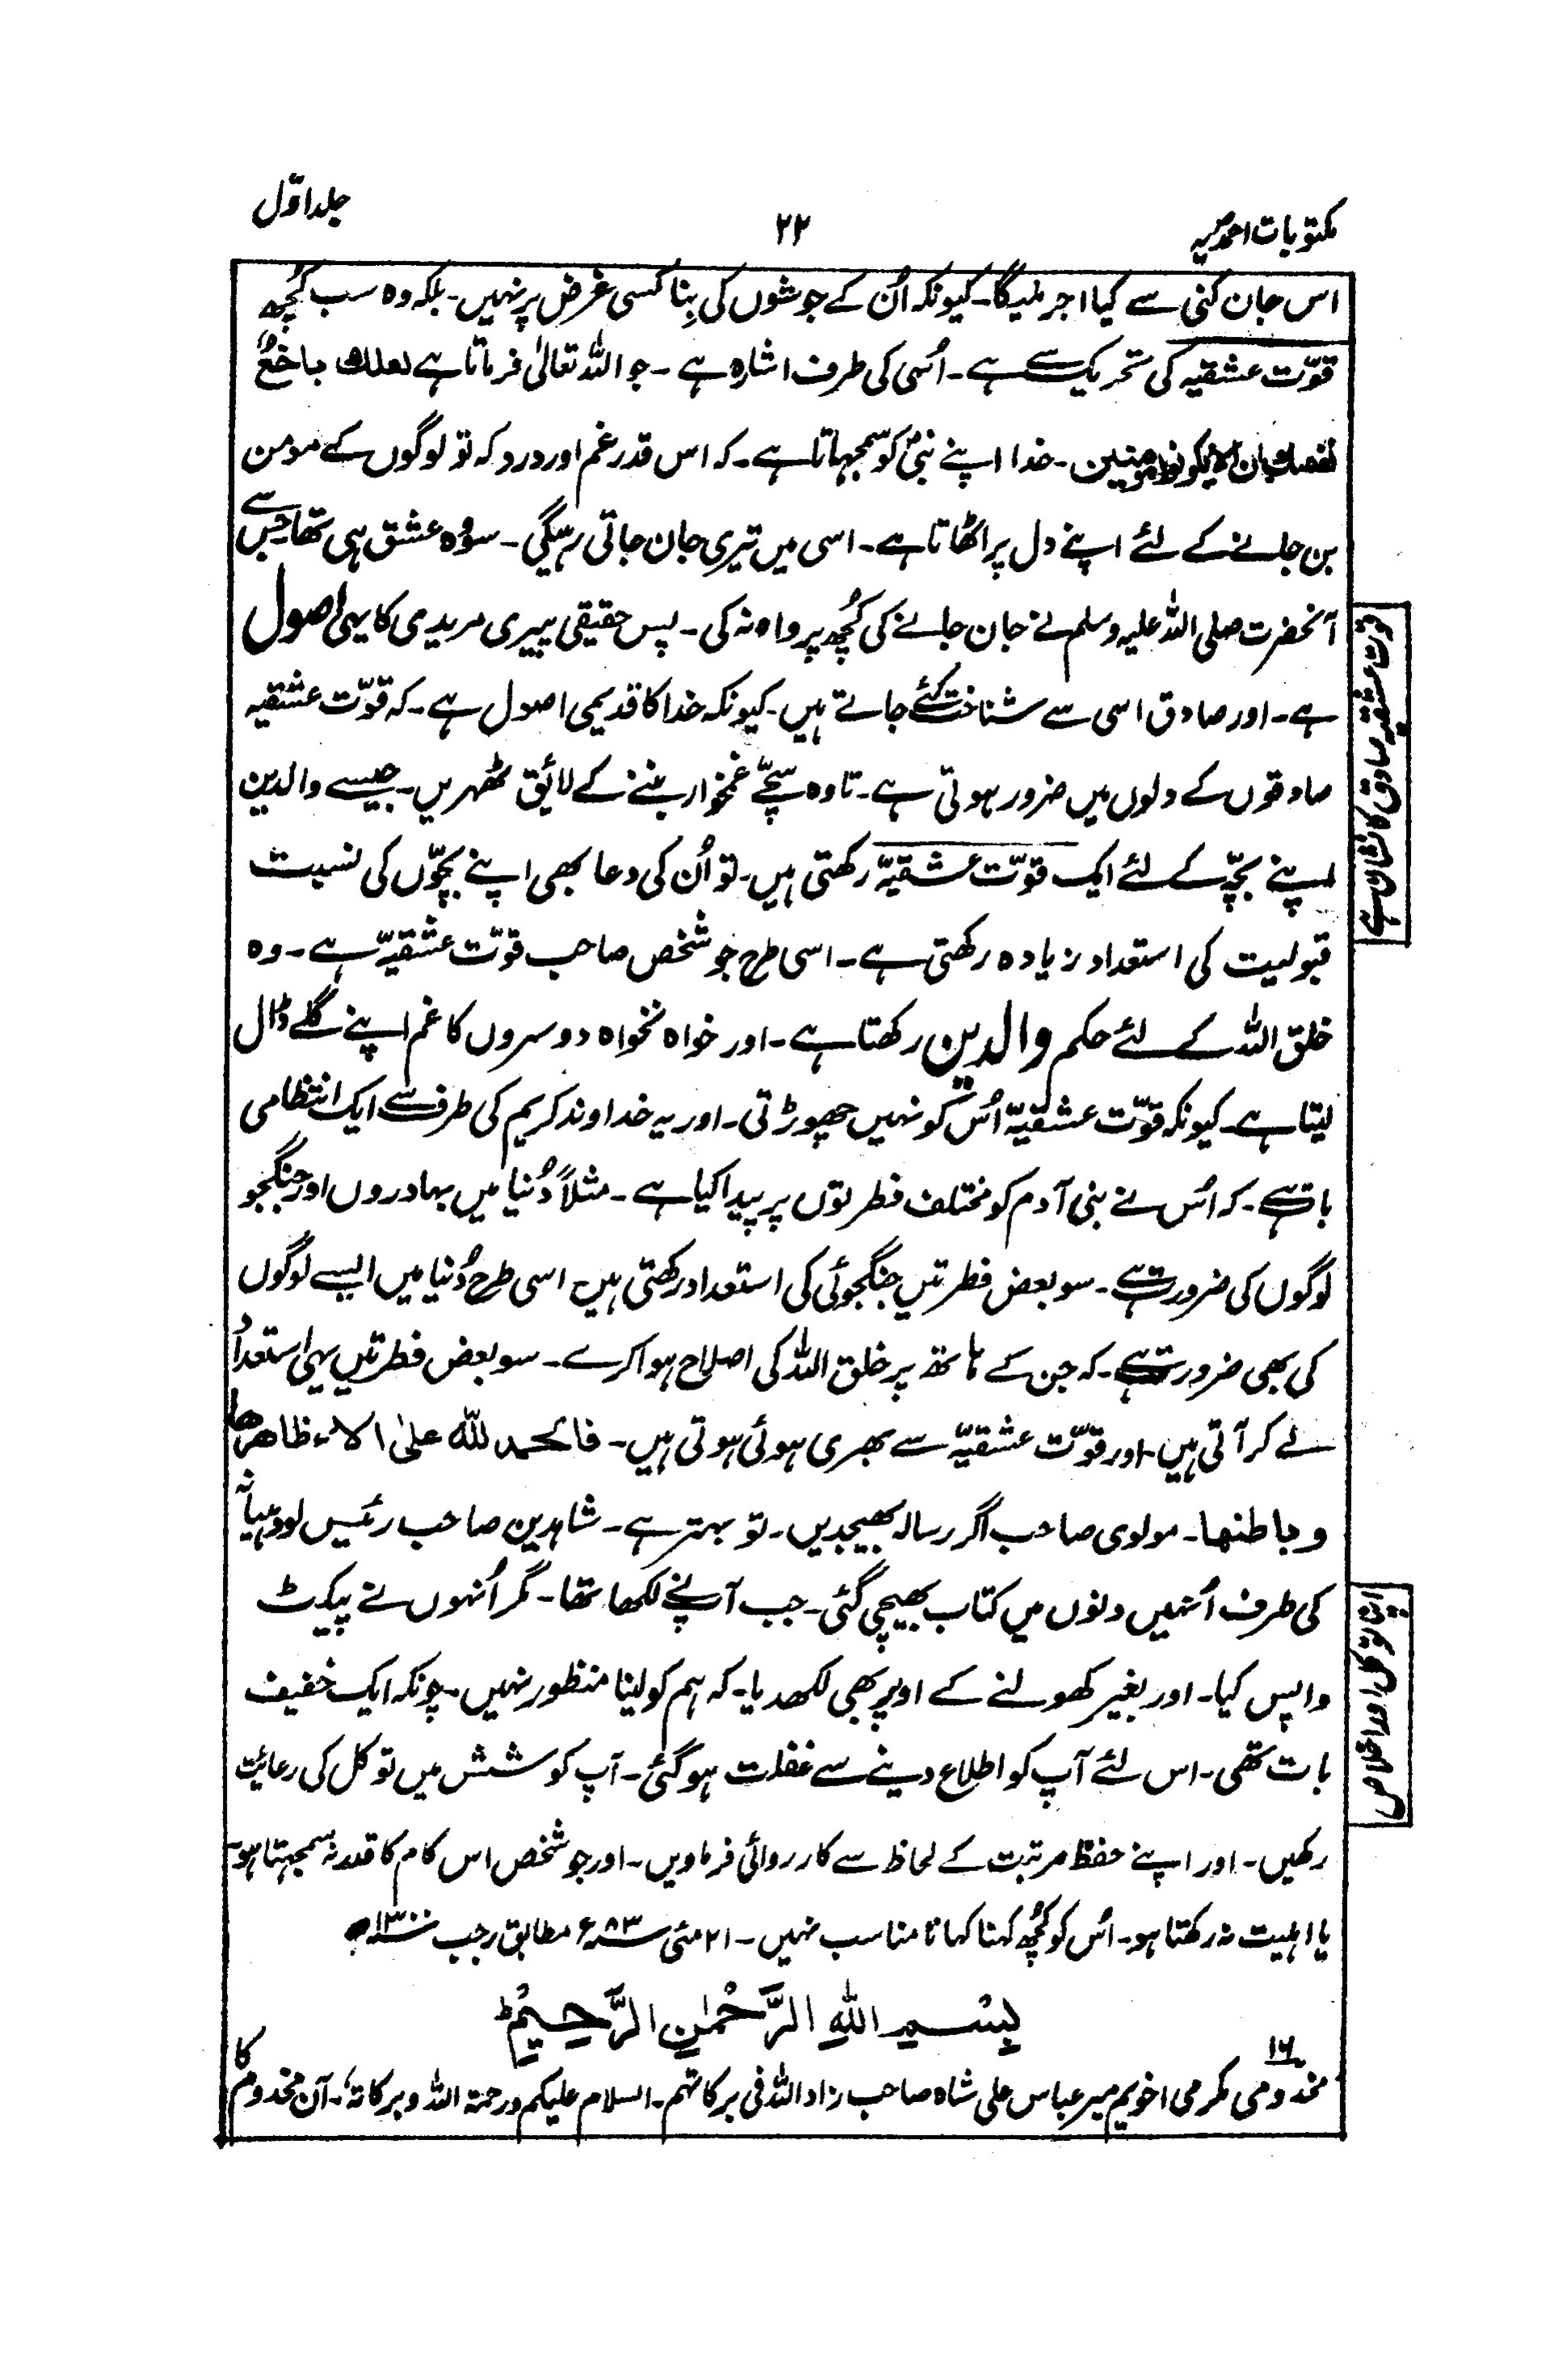 مکتوبات احمدیہ
۲۲
جلد اوّل
اس جان کنی سے کیا اجر ملیگا۔ کیونکہ اُن کے جوشوں کی بِنا کسی غرض پر نہیں۔ بلکہ وہ سب کُچھ
قوّت عشقیہ کی تحریک سے ہے۔ اُسی کی طرف اشارہ ہے ۔ جو اللہ تعالیٰ فرماتا ہے لعلك باخعٌ
نفسك ان لا یکونوا مومنین۔ خدا اپنے نبیؐ کو سمجہاتا ہے۔ کہ اس قدر غم اور درد کہ تو لوگوں کے مومن
بن جانے کے لئے اپنے دل پر اٹھاتا ہے۔ اسی میں تیری جان جاتی رہیگی ۔ سو وُہ عشق ہی تھا جس سے
آنحضرت صلی اللہ علیہ وسلم نے جان جانے کی کُچھ پرواہ نہ کی ۔ پس حقیقی پیری مریدی کا یہی اصول
ہے۔ اور صادق اسی سے شناخت کئے جاتے ہیں۔ کیونکہ خدا کا قدیمی اصول ہے۔ کہ قوّت عشقیہ
صادقوں کے دلوں میں ضرور ہوتی ہے۔ تا وہ سچّے غمخوار بننے کے لائق ٹھہریں۔ جیسے والدین
اپنے بچّہ کے لئے ایک قوّت عشقیّہ رکھتی ہیں۔ تو اُن کی دعا بھی اپنے بچّوں کی نسبت
قبولیت کی استعداد زیادہ رکھتی ہے۔ اسی طرح جو شخص صاحب قوّت عشقیّہ ہے۔ وہ
خلق اللہ کے لئے حکم والدین رکھتا ہے۔ اور خواہ نخواہ دوسروں کا غم اپنے گلے ڈال
لیتا ہے۔ کیونکہ قوّت عشقیّہ اُس کو نہیں چھوڑتی۔ اور یہ خداوند کریم کی طرف سے ایک انتظامی
بات ہے۔ کہ اُس نے بنی آدم کو مختلف فطرتوں پر پیدا کیا ہے۔ مثلاً دُنیا میں بہادروں اور جنگجو
لوگوں کی ضرورت ہے۔ سو بعض فطرتیں جنگجوئی کی استعداد رکھتی ہیں اسی طرح دُنیا میں ایسے لوگوں
کی بھی ضرورت ہے۔ کہ جن کے ہاتھ پر خلق اللہ کی اصلاح ہوا کرے۔ سو بعض فطرتیں یہی استعداد
لے کر آتی ہیں۔ اور قوّت عشقیّہ سے بھری ہوئی ہوتی ہیں۔ فالحمد للّٰہ علیٰ الاء ظاھرھا
و باطنھا۔ مولوی صاحب اگر رسالہ بھیجدیں۔ تو بہتر ہے۔ شاہدین صاحب رئیس لودہیانہ
کی طرف اُنہیں دنوں میں کتاب بھیجی گئی۔ جب آپنے لکھا تھا۔ مگر اُنہوں نے پیکٹ
واپس کیا۔ اور بغیر کھولنے کے اوپر بھی لکھدیا۔ کہ ہم کو لینا منظور نہیں۔ چونکہ ایک خفیف
بات تھی۔ اس لئے آپ کو اطلاع دینے سے غفلت ہوگئی۔ آپ کوشش میں توکل کی رعایت
رکھیں۔ اور اپنے حفظ مرتبت کے لحاظ سے کارروائی فرماویں۔ اور جو شخص اس کام کا قدر نہ سمجہتا ہو۔
یا اہلیت نہ رکھتا ہو۔ اُس کو کُچھ کہنا کہانا مناسب نہیں۔ ۲۱ مئی ۸۳ء مطابق رجب ۱۳۰۰ھ
بِسْمِ اللّٰہِ الرَّحْمٰنِ الرَّحِیْمِ
۱۶
مخدومی مکرمی اخویم میر عباس علی شاہ صاحب زاد اللہ فی برکاتہم۔ السلام علیکم ورحمۃ اللہ وبرکاتہٗ۔ آن مخدوم کا
قوت عشقیہ صادق کا نشان ہے
توکل اور اخلاص